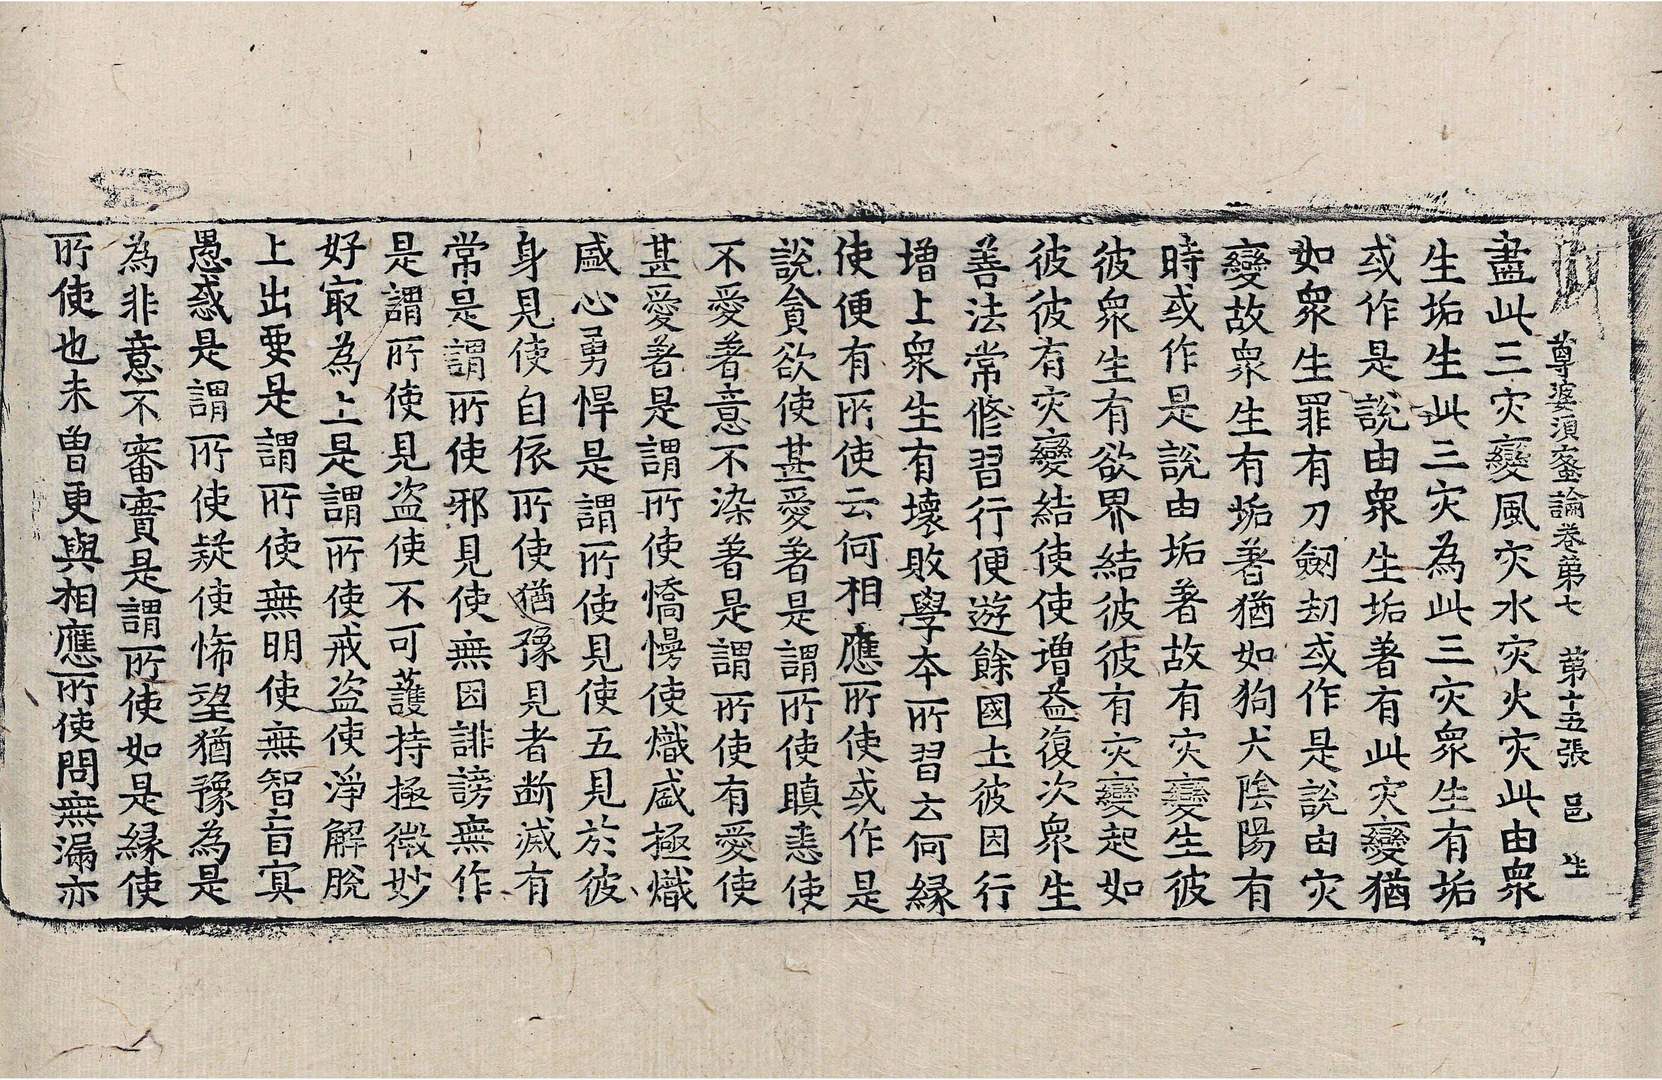 尊婆須蜜論卷第七 第十五張 邑 生
盡此三灾變風灾水灾火灾此由衆
生垢生此三灾為此三灾衆生有垢
或作是說由衆生垢著有此灾變猶
如衆生罪有刀劒刧或作是說由灾
變故衆生有垢著猶如狗犬陰陽有
時或作是說由垢著故有灾變生彼
彼衆生有欲界結彼彼有灾變起如
彼彼有灾變結使使增益復次衆生
善法常修習行便遊餘國土彼因行
增上衆生有壞敗學本所習云何緣
使便有所使云何相應所使或作是
說貪欲使甚愛著是謂所使瞋恚使
不愛著意不染著是謂所使有愛使
甚愛著是謂所使憍慢使熾盛極熾
盛心勇悍是謂所使見使五見於彼
身見使自依所使猶豫見者断滅有
常是謂所使邪見使無因誹謗無作
是謂所使見盗使不可護持極微妙
好㝡為上是謂所使戒盗使淨解脫
上出要是謂所使無明使無智盲㝠
愚惑是謂所使疑使悕望猶豫為是
為非意不審實是謂所使如是緣使
所使也未曾更與相應所使問無漏亦